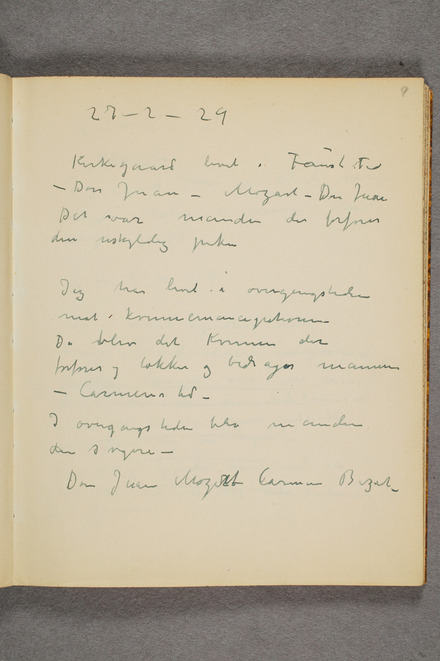 9
27–2–29
Kirkegaard levet i Faust tid
– Don Juan – Mozart – Don Juan
Det var manden der forfører
den uskyldig pike
Jeg har levet i overgangstiden
met i kvinnemancipationen
Da blev det Kvinnen der
forfører og lokker og bedrager mannen
– Carmens tid –
I overgangstiden blev manden
den svagere –
Don Juan Mozart Carmen Bizet –